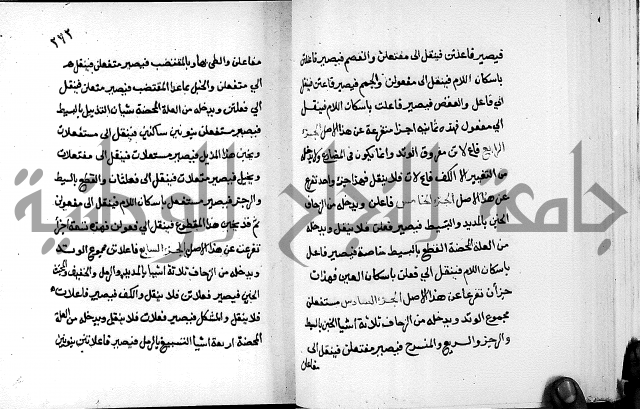 فيصير فاعلتن فينقل الى مفتعلن والقصم فيصير فاعلتن
باسكان اللام فينقل الى مفعولن والجمم فيصير فاعتن فينقل
الى فاعل والعقص فيصير فاعلت باسكان اللام فينقل
الي مفعول فهذه ثمانيه اجزا متفرعة عن هذا الاصل الجزء
الرابع فاع لاتن مفروق الوتد وانما يكون في المضارع ولا يدخله
من التغيير الا الكف فيصير فاع لات فلا ينقل فهذا جزء واحد تفرع
عن هذا الاصل الجزء الخامس فاعلن ويدخله من الزحاف
الخبن بالمديد والبسيط فيصير فعلن فلا ينقل ويدخله
من العلة المحضة القطع بالبسيط خاصة فيصير فاعل
باسكان اللام فينقل الي فعلن باسكان العين فهذان
جزأن تفرعا عن هذا الاصل الجزء السادس مستفعلن
مجموع الوتد ويدخله من الزحاف ثلاثة اشيا الخبن بالبسيط
والرجز والسريع والمنسرح فيصير متفعلن فينقل الى
مفاعلن
٢٧٣
مفاعلن والطي بها وبالمقتضب فيصير مستعلن فينقل
الي مفتعلن والخبل بما عدا المقتضب فيصير متعلن فينقل
الي فعلتن ويدخله من العلة المحضة شيان التذييل بالبسيط
فيصير مستفعلن بنونين ساكنين فينقل الى مستفعلات
ويخبن هذا المذيل فيصير مستعلات فينقل الى مفتعلات
ويخبل فيصير متعلات فينقل الى فعلتان والقطع بالبسيط
والرجز فيصير مستفعل باسكان اللام فينقل الى مفعولن
ثم قد يخبن هذا المقطوع فينقل الى فعولن فهذه تسعة اجزا
تفرعت عن هذا الاصل الجزء السابع فاعلاتن مجموع الوتد
ويدخله من الزحاف ثلاثة اشيا بالمديد والرمل والخفيف والمجتث
الخبن فيصير فعلاتن فلا ينقل والكف فيصير فاعلات
فلا ينقل والشكل فيصير فعلات فلا ينقل ويدخله من العلة
المحضة اربعة اشيا التسبيغ بالرمل فيصير فاعلاتن بنونين